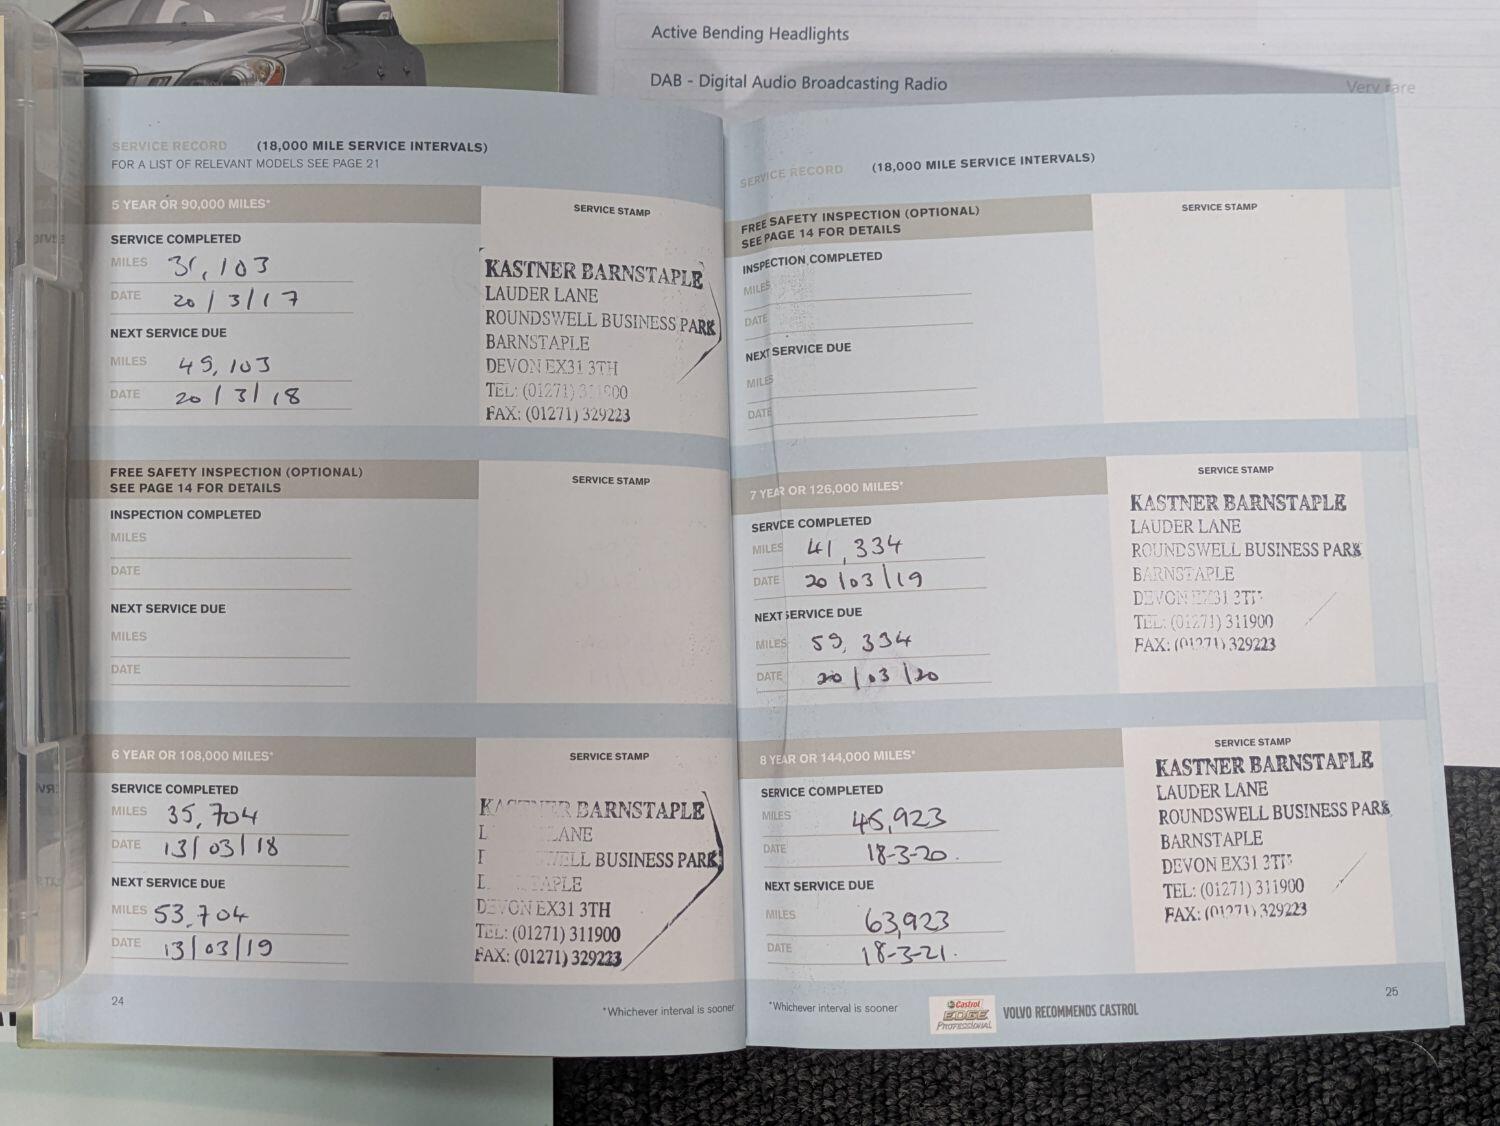 Active Bending Headlights
DAB - Digital Audio Broadcasting Radio
Very rare
SERVICE RECORD (18,000 MILE SERVICE INTERVALS)
FOR A LIST OF RELEVANT MODELS SEE PAGE 21
5 YEAR OR 90,000 MILES*
SERVICE STAMP
SERVICE COMPLETED
MILES 31,103
DATE 20/3/17
NEXT SERVICE DUE
MILES 49,103
DATE 20/3/18
KASTNER BARNSTAPLE
LAUDER LANE
ROUNDSWELL BUSINESS PARK
BARNSTAPLE
DEVON EX31 3TH
TEL: (01271) 311900
FAX: (01271) 329223
FREE SAFETY INSPECTION (OPTIONAL)
SEE PAGE 14 FOR DETAILS
SERVICE STAMP
INSPECTION COMPLETED
MILES
DATE
NEXT SERVICE DUE
MILES
DATE
6 YEAR OR 108,000 MILES*
SERVICE STAMP
SERVICE COMPLETED
MILES 35,704
DATE 13/03/18
NEXT SERVICE DUE
MILES 53,704
DATE 13/03/19
KASTNER BARNSTAPLE
LANE
BUSINESS PARK
DEVON EX31 3TH
TEL: (01271) 311900
FAX: (01271) 329223
24
*Whichever interval is sooner
SERVICE RECORD (18,000 MILE SERVICE INTERVALS)
FREE SAFETY INSPECTION (OPTIONAL)
SEE PAGE 14 FOR DETAILS
SERVICE STAMP
INSPECTION COMPLETED
MILES
DATE
NEXT SERVICE DUE
MILES
DATE
7 YEAR OR 126,000 MILES*
SERVICE STAMP
SERVICE COMPLETED
MILES 41,334
DATE 20/03/19
NEXT SERVICE DUE
MILES 59,334
DATE 20/03/20
KASTNER BARNSTAPLE
LAUDER LANE
ROUNDSWELL BUSINESS PARK
BARNSTAPLE
DEVON EX31 3TH
TEL: (01271) 311900
FAX: (01271) 329223
8 YEAR OR 144,000 MILES*
SERVICE STAMP
SERVICE COMPLETED
MILES 45,923
DATE 18-3-20.
NEXT SERVICE DUE
MILES 63,923
DATE 18-3-21.
KASTNER BARNSTAPLE
LAUDER LANE
ROUNDSWELL BUSINESS PARK
BARNSTAPLE
DEVON EX31 3TH
TEL: (01271) 311900
FAX: (01271) 329223
*Whichever interval is sooner
Castrol
EDGE
PROFESSIONAL
VOLVO RECOMMENDS CASTROL
25